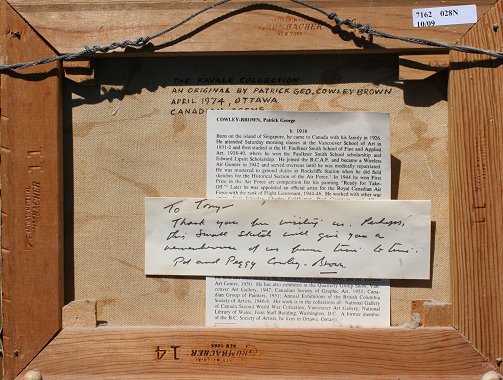 GRUMBACHER
NEW YORK
7162 028N
10/09
THE FAVALE COLLECTION
AN ORIGINAL BY PATRICK GEO. COWLEY-BROWN
APRIL 1974, OTTAWA
CANADIAN
COWLEY-BROWN, Patrick George
b. 1918
Born on the island of Singapore, he came to Canada with his family in 1926.
He attended Saturday morning classes at the Vancouver School of Art in
1931-2 and then studied at the H. Faulkner Smith School of Fine and Applied
Art, 1938-40, where he won the Faulkner Smith School scholarship and
Edward Lipsitt Scholarship. He joined the R.C.A.F. and became a Wireless
Air Gunner in 1942 and served overseas until he was medically repatriated.
He was remustered to ground duties at Rockcliffe Station when he did field
sketches for the Historical Section of the Air Force. In 1944 he won First
Prize in the Air Force art competition for his painting "Ready for Take-
Off." Later he was appointed an official artist for the Royal Canadian Air
Force with the rank of Flight Lieutenant, 1944-46. He worked with other
To Tony-
Thank you for visiting us. Perhaps,
this small sketch will give you a
remembrance of us from time to time.
Pat and Peggy Cowley-Brown
Art Centre, 1950. He has also exhibited in the Quarterly Group Show, Van-
couver Art Gallery, 1947; Canadian Society of Graphic Art, 1951; Cana-
dian Group of Painters, 1951; Annual Exhibitions of the British Columbia
Society of Artists, 1946-8. His work is in the collections of: National Gallery
of Canada Second World War Collection; Vancouver Art Gallery, National
Library of Wales; Joint Staff Building, Washington, D.C. A former member
of the B.C. Society of Artists, he lives in Ottawa, Ontario.
GRUMBACHER
GRUMBACHER
NEW YORK
14